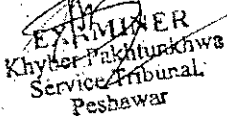 EXAMINER
Khyber Pakhtunkhwa
Service Tribunal,
Peshawar